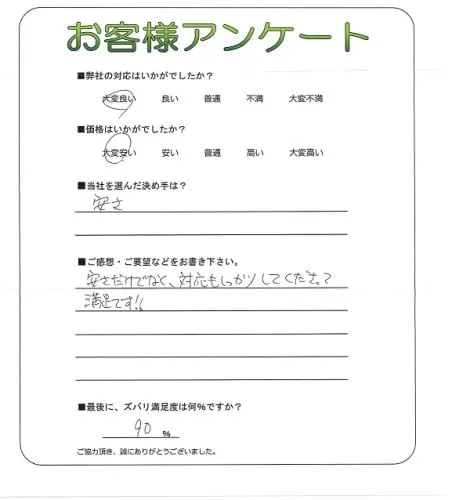 お客様アンケート
■弊社の対応はいかがでしたか?
大変良い 良い 普通 不満 大変不満
■価格はいかがでしたか?
大変安い 安い 普通 高い 大変高い
■当社を選んだ決め手は?
安さ
■ご感想・ご要望などをお書き下さい。
安さだけでなく、対応もしっかりしてくださって
満足です!!
■最後に、ズバリ満足度は何%ですか?
90 %
ご協力頂き、誠にありがとうございました。